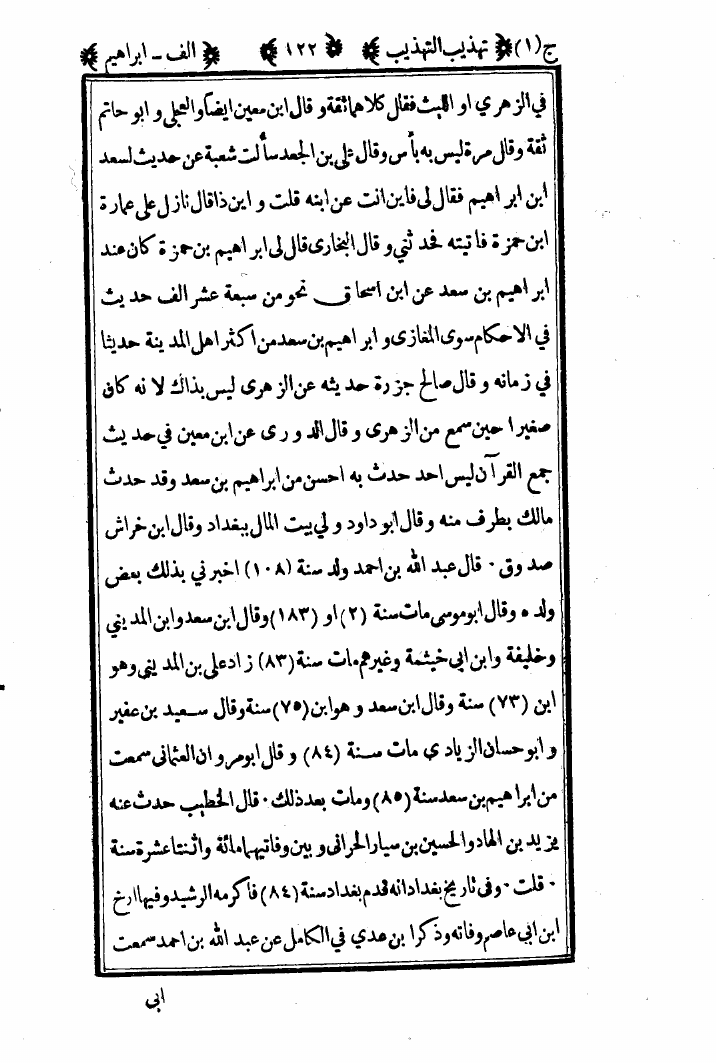 ج(١) تهذيب التهذيب ١٢٢ الف - ابراهيم
في الزهري او الليث فقال كلاهما ثقة و قال ابن معين ايضا والعجلى و ابو حاتم
ثقة وقال مرة ليس به بأس وقال على بن الجعد سألت شعبة عن حديث لسعد
ابن ابراهيم فقال لى فاين انت عن ابنه قلت و اين ذا قال نازل على عمارة
ابن حمزة فاتيته فحدثني و قال البخارى قال لى ابراهيم بن حمزة كان عند
ابراهيم بن سعد عن ابن اسحاق نحو من سبعة عشر الف حديث
في الاحكام سوى المغازى و ابراهيم بن سعد من اكثر اهل المدينة حديثا
في زمانه و قال صالح جزرة حديثه عن الزهرى ليس بذاك لانه كان
صغيرا حين سمع من الزهرى و قال الدورى عن ابن معين في حديث
جمع القرآن ليس احد حدث به احسن من ابراهيم بن سعد وقد حدث
مالك بطرف منه و قال ابو داود ولي بيت المال ببغداد وقال ابن خراش
صدوق ٠ قال عبد الله بن احمد ولد سنة (١٠٨) اخبرني بذلك بعض
ولده وقال ابو موسى مات سنة (٢) او (١٨٣) وقال ابن سعد وابن المديني
وخليفة وابن ابى خيثمة وغيرهم مات سنة (٨٣) زاد على بن المديني وهو
ابن (٧٣) سنة وقال ابن سعد و هو ابن (٧٥) سنة وقال سعيد بن عفير
و ابو حسان الزيادي مات سنة (٨٤) و قال ابو مروان العثمانى سمعت
من ابراهيم بن سعد سنة (٨٥) ومات بعد ذلك ٠ قال الخطيب حدث عنه
يزيد بن الهاد والحسين بن سيار الحرانى و بين وفاتيهما مائة واثنتا عشرة سنة
٠ قلت ٠ وفى تاريخ بغداد انه قدم بغداد سنة (٨٤) فاكرمه الرشيد وفيها ارخ
ابن ابي عاصم وفاته و ذكر ابن عدي في الكامل عن عبد الله بن احمد سمعت
ابى